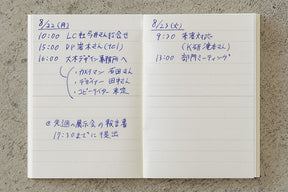 8/22(月)
10:00 LC社 今井さん打合せ
15:00 DF 宮木さん(tel)
16:00 六本木デザイン事務所へ
・カメラマン 石田さん
・デザイナー 田中さん
・コピーライター 未定
先週の展示会の報告書
17:30までに提出
8/23(火)
9:30 来客対応
13:00 部門ミーティング